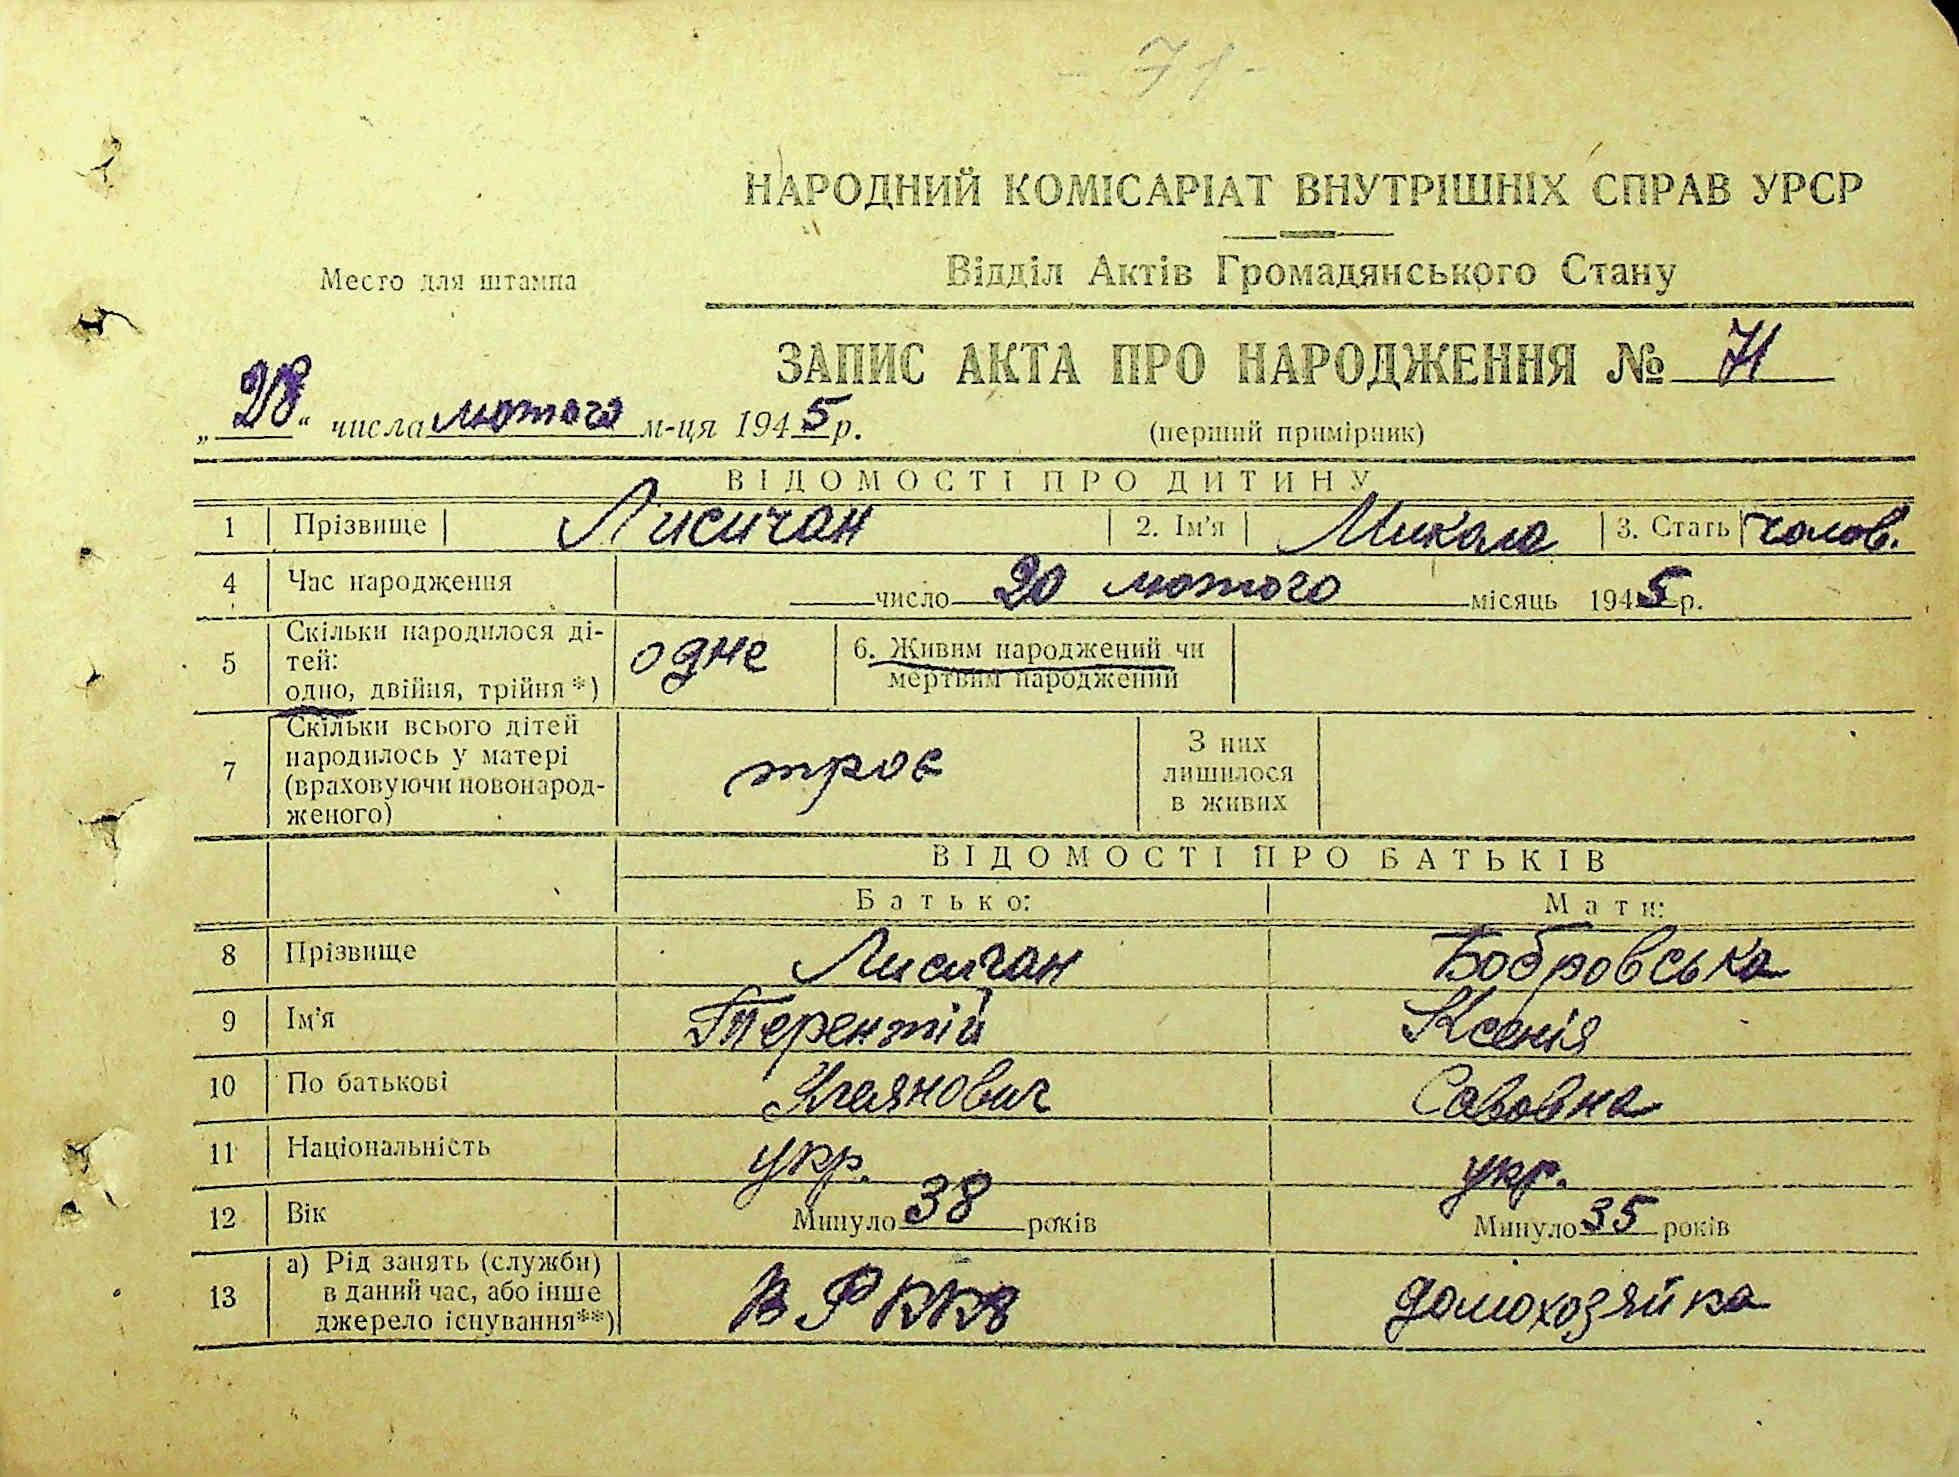 - 71 -
НАРОДНИЙ КОМІСАРІАТ ВНУТРІШНІХ СПРАВ УРСР
Место для штампа
Відділ Актів Громадянського Стану
ЗАПИС АКТА ПРО НАРОДЖЕННЯ № 71
„28“ числа лютого м-ця 1945 р.
(перший примірник)
ВІДОМОСТІ ПРО ДИТИНУ
1 Прізвище Лисичан 2. Ім'я Микола 3. Стать чолов.
4 Час народження число 20 лютого місяць 1945 р.
5 Скільки народилося ді-
тей:
одно, двійня, трійня*) одне 6. Живим народжений чи
мертвим народжений
7 Скільки всього дітей
народилось у матері
(враховуючи новонарод-
женого) троє З них
лишилося
в живих
ВІДОМОСТІ ПРО БАТЬКІВ
Батько: Мати:
8 Прізвище Лисичан Бобровська
9 Ім'я Терентій Ксенія
10 По батькові Улянович Савовна
11 Національність укр. укр.
12 Вік Минуло 38 років Минуло 35 років
13 а) Рід занять (служби)
в даний час, або інше
джерело існування**) В РККА домохозяйка